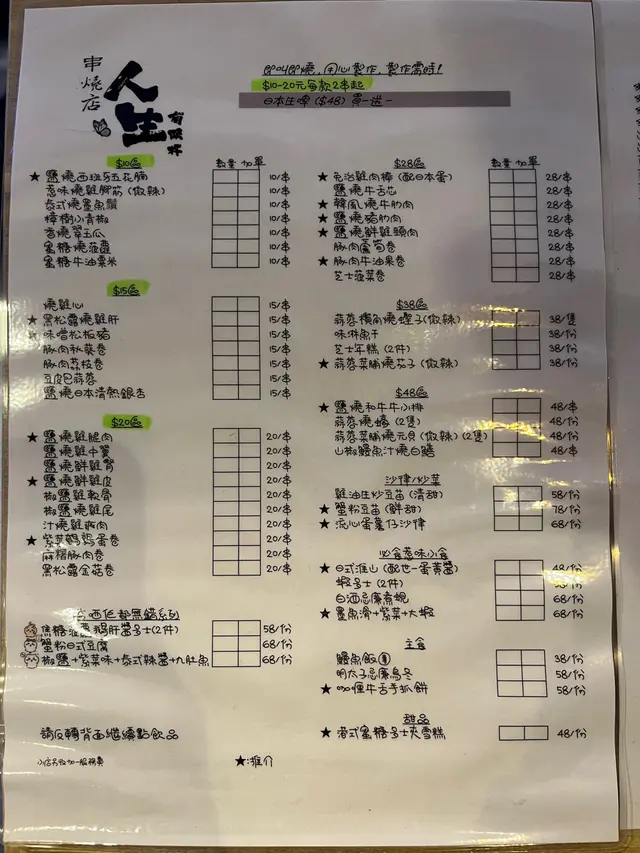 串燒店
人生
有限杯
即叫即燒,用心製作,製作需時!
$10-20元每款2串起
日本生啤($48)買一送一
$10區 數量 加單
★ 鹽燒西班牙五花腩 10/串
惹味燒雞腳筋(微辣) 10/串
泰式燒墨魚鬚 10/串
樟樹小青椒 10/串
香燒翠玉瓜 10/串
蜜糖燒菠蘿 10/串
蜜糖牛油粟米 10/串
$15區
燒雞心 15/串
★ 黑松露燒雞肝 15/串
味噌松板豬 15/串
豚肉秋葵卷 15/串
豚肉荔枝卷 15/串
豆皮包蒜蓉 15/串
鹽燒日本清熱銀杏 15/串
$20區
★ 鹽燒雞腿肉 20/串
鹽燒雞中翼 20/串
鹽燒鮮雞腎 20/串
★ 鹽燒鮮雞皮 20/串
椒鹽燒雞軟骨 20/串
椒鹽燒雞尾 20/串
汁燒雞菽肉 20/串
★ 紫菜鵪鶉蛋卷 20/串
麻糬豚肉卷 20/串
黑松露金菇卷 20/串
焦糖菠蘿鵝肝醬多士(2件) 58/份
蟹粉日式豆腐 68/份
★ 椒鹽+紫菜味+泰式辣醬+九肚魚 68/份
請反轉背面繼續點飲品
小店另收加一服務費
★:推介
$28區 數量 加單
★ 免治雞肉棒(配日本蛋) 28/串
鹽燒牛舌芯 28/串
★ 韓風燒牛肋肉 28/串
★ 鹽燒豬肋肉 28/串
★ 鹽燒鮮雞頸肉 28/串
豚肉蘆筍卷 28/串
★ 豚肉牛油果卷 28/串
芝士菠菜卷 28/串
$38區
蒜蓉欖角燒蟶子(微辣) 38/隻
味淋魚干 38/份
芝士年糕(2件) 38/份
★ 蒜蓉菜脯燒茄子(微辣) 38/份
$48區
★ 鹽燒和牛牛小排 48/串
蒜蓉燒蠔(2隻) 48/份
蒜蓉菜脯燒元貝(微辣)(2隻) 48/份
山椒鰻魚汁燒白鱔 48/串
沙律/炒菜
雞油生炒豆苗(清甜) 58/份
★ 蟹粉豆苗(鮮甜) 78/份
★ 流心蛋薯仔沙律 68/份
必食惹味小食
★ 日式淮山(配世一蛋黃醬) 48/份
蝦多士(2件) 58/份
白酒忌廉煮蜆 68/份
★ 墨魚滑+紫菜+大蝦 68/份
主食
鰻魚飯 38/份
明太子忌廉烏冬 58/份
★ 咖喱牛舌手抓餅 58/份
甜品
★ 港式蜜糖多士夾雪糕 48/份